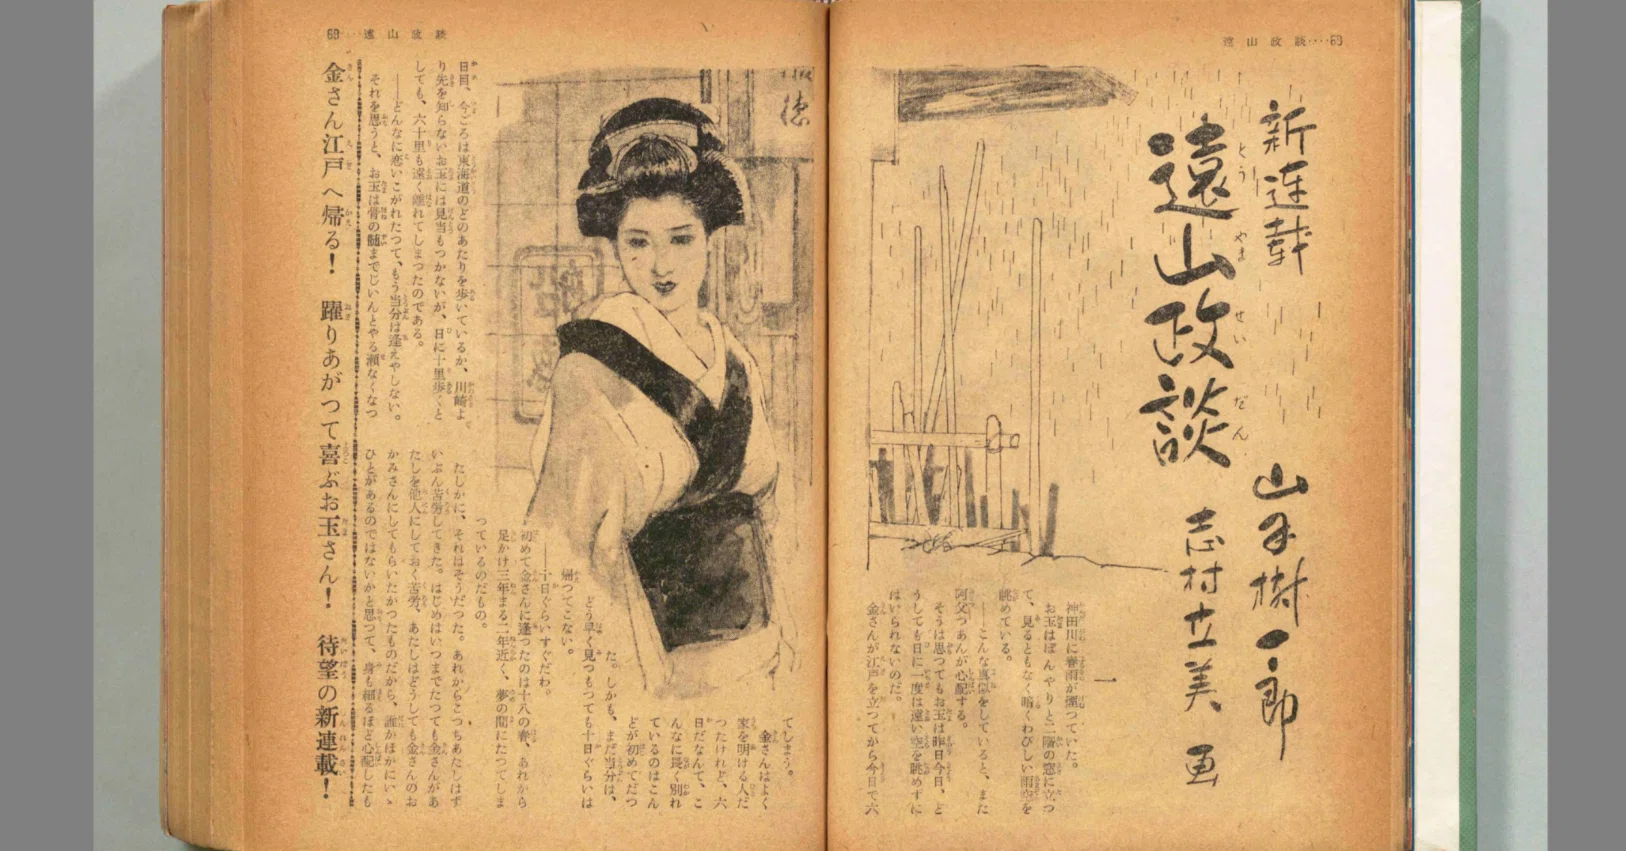 遠山政談‥‥68
新連載
遠山政談
とうやませいだん
山手樹一郎
志村立美 画
一
神田川に春雨が煙つていた。
お玉はぼんやりと二階の窓に立つ
て、見るともなく暗くわびしい雨空を
眺めている。
――こんな真似をしていると、また
阿父つあんが心配する。
そうは思つてもお玉は昨日今日、ど
うしても日に一度は遠い空を眺めずに
はいられないのだ。
金さんが江戸を立つてから今日で六
69‥‥遠山政談
日目、今ごろは東海道のどのあたりを歩いているか、川崎よ
り先を知らないお玉には見当もつかないが、日に十里歩くと
しても、六十里も遠く離れてしまつたのである。
――どんなに恋いこがれたつて、もう当分は逢えやしない。
それを思うと、お玉は骨の髄までじいんとやる瀬なくなつ
てしまう。
金さんはよく
家を明ける人だ
つたけれど、六
日だなんて、こ
んなに長く別れ
ているのはこん
どが初めてだつ
た。しかも、まだ当分は、
どう早く見つもつても十日ぐらいは
帰つてこない。
――十日ぐらいすぐだわ。
初めて金さんに逢つたのは十八の春、あれから
足かけ三年まる二年近く、夢の間にたつてしま
つているのだもの。
たしかに、それはそうだつた。あれからこつちあたしはず
いぶん苦労してきた。はじめはいつまでたつても金さんがあ
たしを他人にしておく苦労、あたしはどうしても金さんのお
かみさんにしてもらいたかつたものだから、誰かほかにいゝ
ひとがあるのではないかと思つて、身も細るほど心配したも
金さん江戸へ帰る! 躍りあがつて喜ぶお玉さん! 待望の新連載!
徳